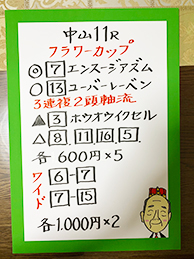 中山11R
フラワーカップ
◎ 7 エンスージアズム
○ 13 ユーバーレーベン
3連複2頭軸流
▲ 3 ホウオウイクセル
△ 8 11 16 5
各 600円×5
ワイド 6-7
7-15
各1,000円×2